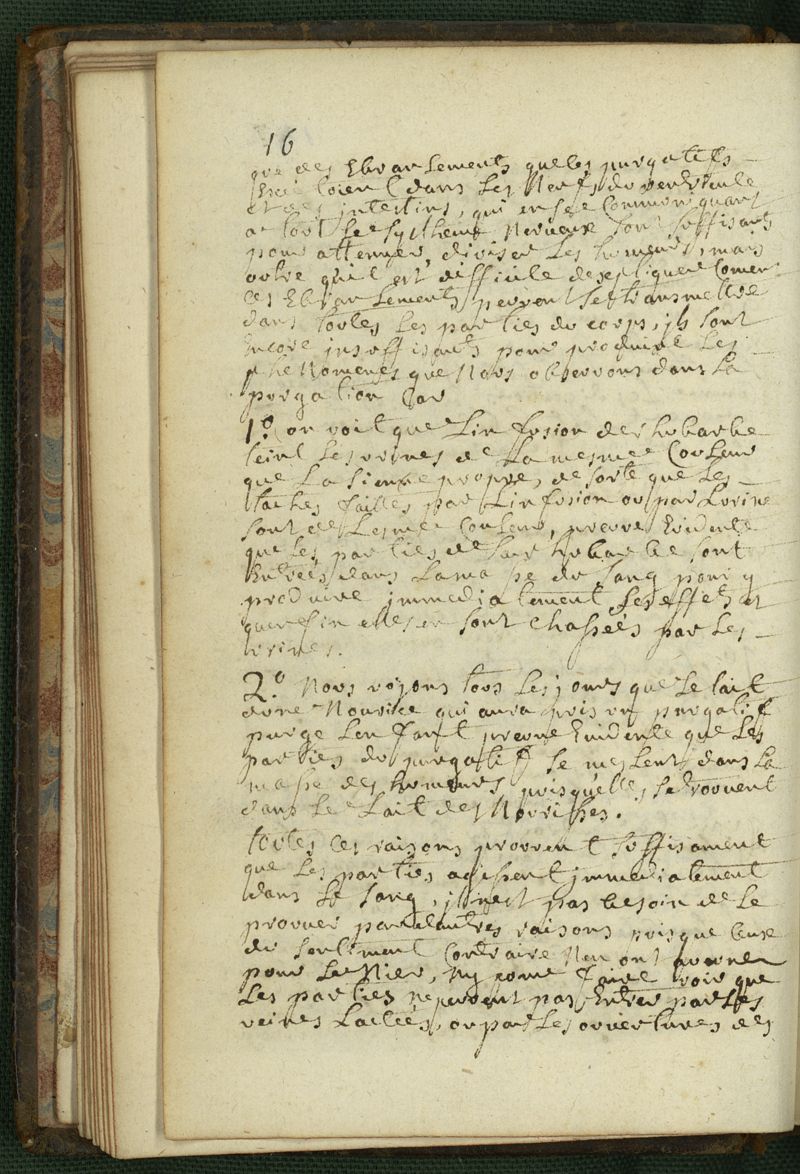 16
que des Ebranlements que les purgatifs
Exci toient dans Les Nerfs du ventricule
et des intestins, qui en se Commun quant
a tout Le Systheme Nerveux sont suffisants
pour attenuer, diviser Les humeurs, mais
outre quil est difficile desepliquer Comen
ces Ebranlements peuvent se transmettre
dans toutes Les parties du corps, ils sont
Encore insuffisants pour produire Les
phenomenes que Nous observons dans La
purgation Car
1º on voit que Linfusion de rhubarbe
teint Les urines de La mesme Couleur
que La sienne propre, de sorte que Les
taches faittes par Linfusion ou par Lurine
sont de Lesme Couleur, preuve Evidente
que Les parties de La rhubarbe sont
Entrées dans La ma sse du sang pour y
produire immediatement ses effets et
quenfin elles en sont chassées par Les
urines.
2º Nous voyons tous Les jours que Le lait
dune Nourice qui aura pris un purgatif
purge Lenfant preuve Evidente que Les
parties du purgatif se meslent dans La
masse des humeurs puisquelles se trouvent
dans Le Lait des Nourisses.
toutes ces raisons prouvent suffisament
que Les parties agissent immediatement
dans Le sang, il nest pas besoin de Le
prouver par dautres raisons puisque Ceux
du sentiment Contraire Nen ont aucunes
pour Le Nier, Ny pour faire voir que
Les parties ne peuvent pas Entrer par Les
veines Lactées, ou par Les ouvertures des